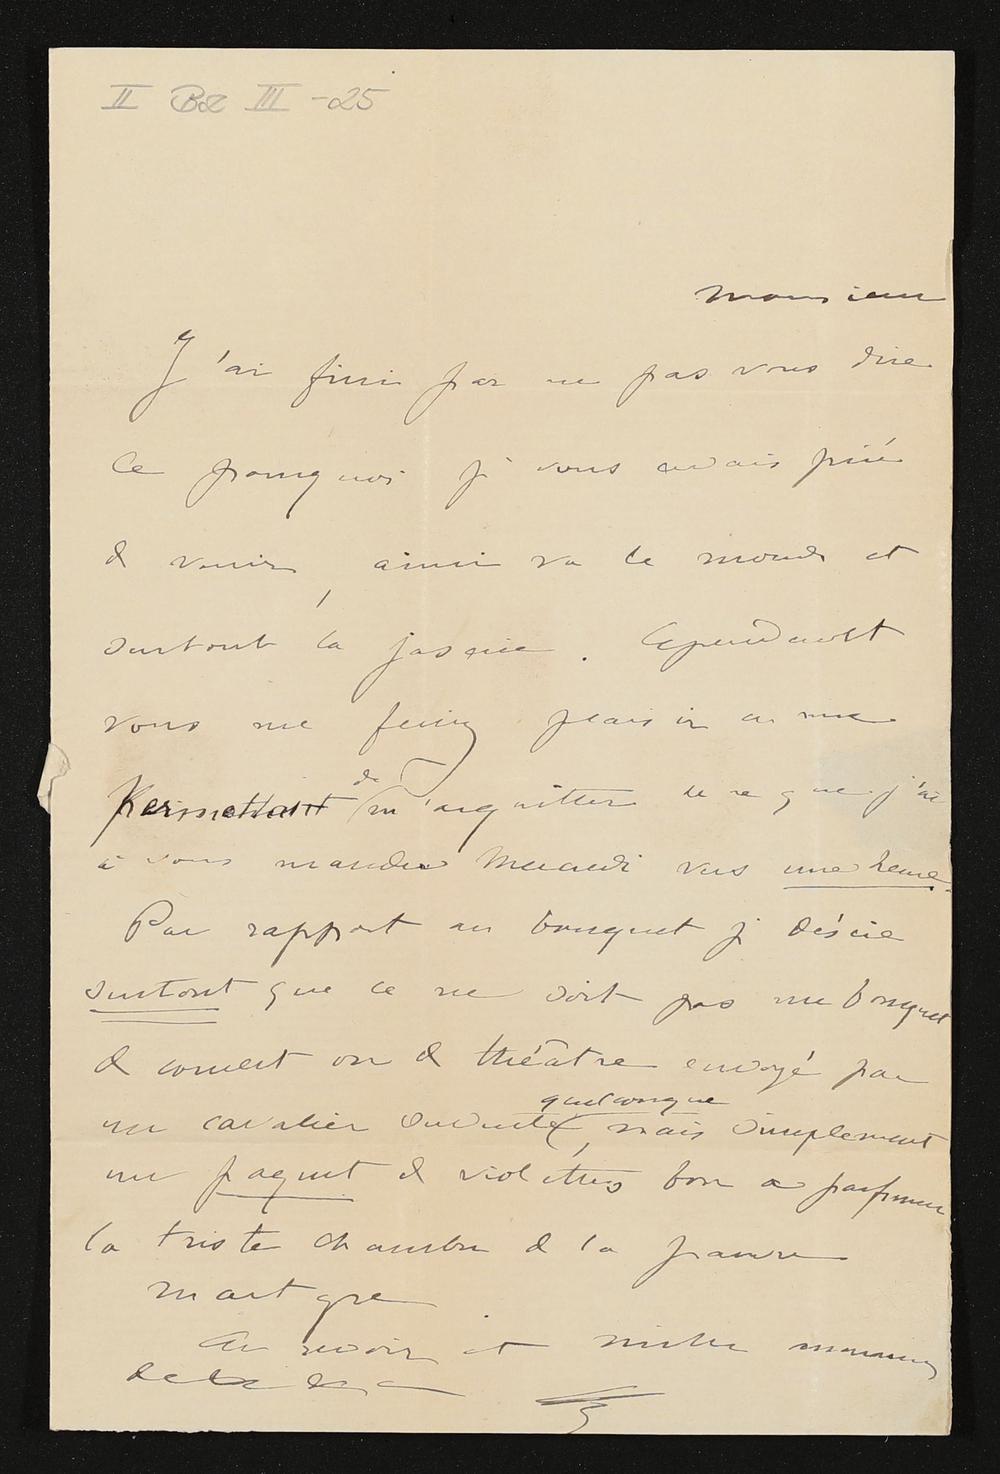 II Bd III - 25
Monsieur
J'ai fini par ne pas vous dire
ce pourquoi je vous avais prié
de venir, ainsi va le monde et
surtout la . Cependant
vous me feriez plaisir en me
permettant de m'acquitter de ce que j'ai
à vous mander Mercredi vers une heure.
Par rapport au bouquet je désire
surtout que ce ne soit pas un bouquet
de concert ou de théâtre envoyé par
un cavalier servente quelconque, mais simplement
un paquet de violettes bon à parfumer
la triste chambre de la pauvre
martyre.
Au revoir et mille